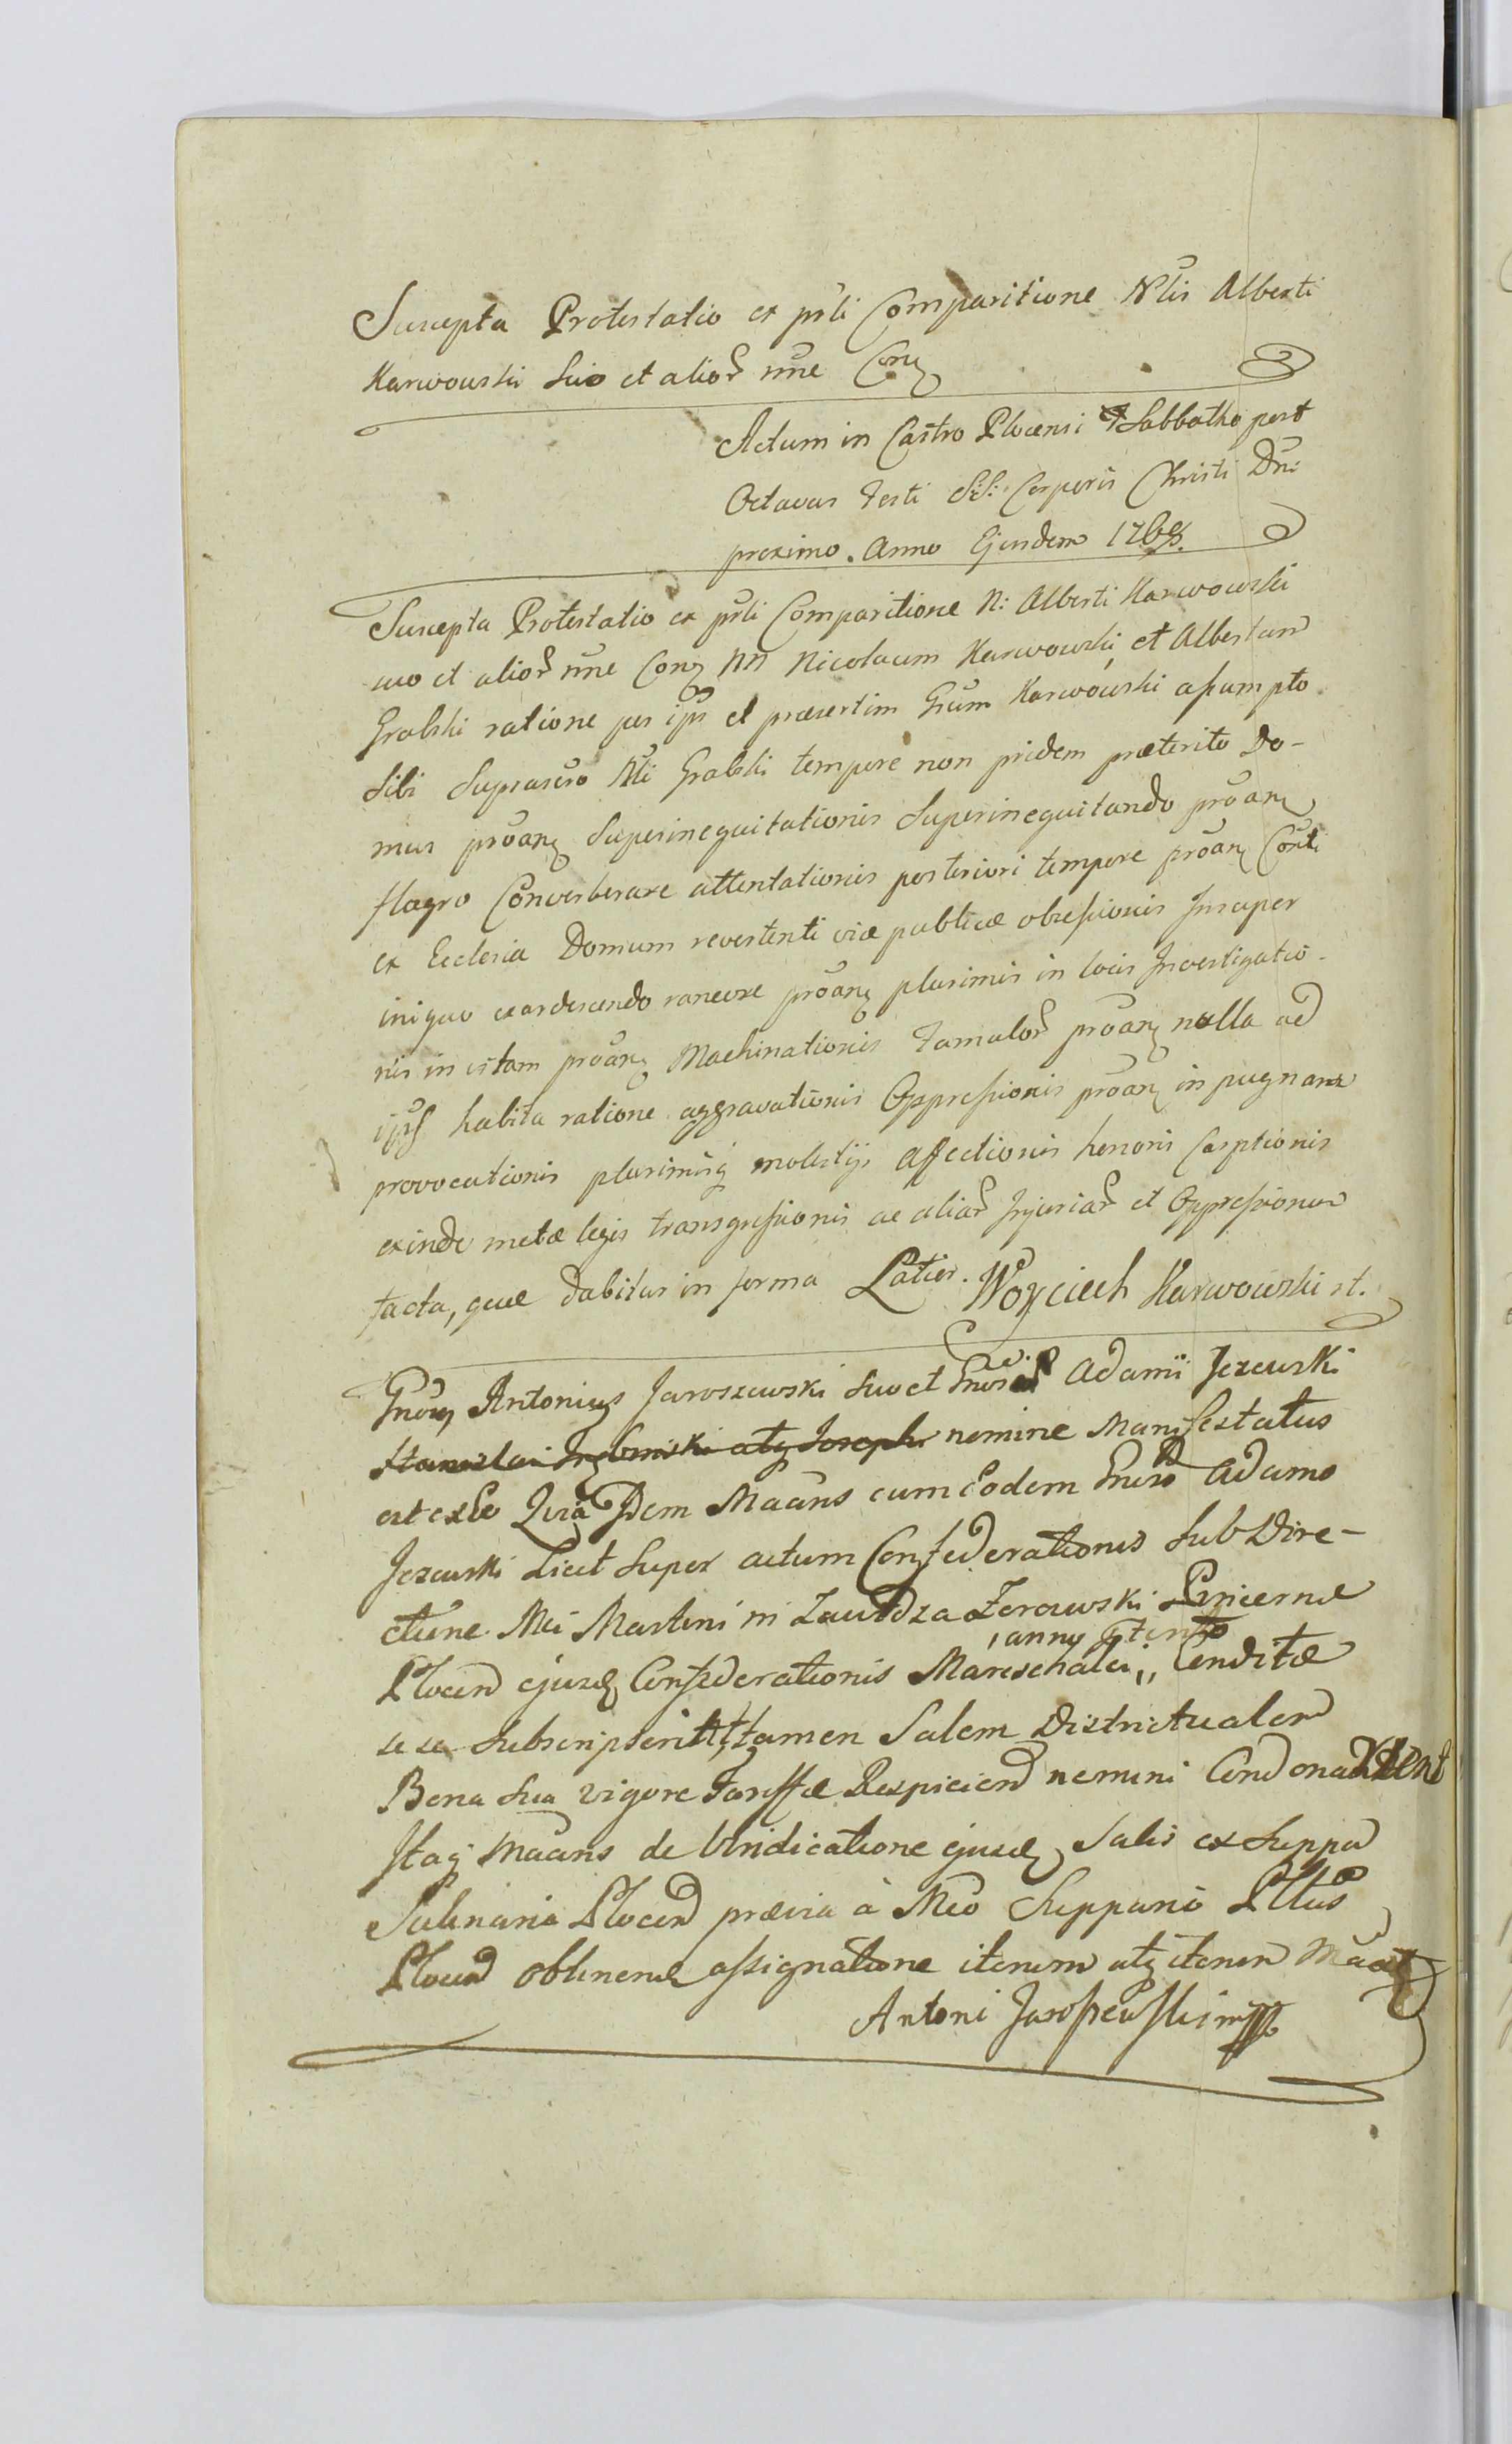 Suscepta Protestatio ex pñli Comparitione Nlis Alberti
Karwowski suo et alior nñe Con
Actum in Castro Plocensi Sabbatho post
Octavas Festi SS: Corporis Christi Dni
proximo. Anno Ejusdem 1768.
Suscepta Protestatio ex pñli Comparitione N: Alberti Karwowski
suo et alior nñe Con NN Nicolaum Karwowski et Albertum
Grabski ratione per ips et præsertim Gñum Karwowski assumpto
sibi suprascrõ Nli Grabski tempore non pridem præterito Do-
mus prõanq superinequitationis superinequitando prõanq
flagro Converberare attentationis posteriori tempore prõanq Conti
ex Ecclesia Domum revertenti viæ publicæ obsessionis Insuper
iniquo exardescendo rancore prõanq plurimis in locis Investigatio-
nis in vitam prõanq Machinationis Famulor prõanq nulla ad
ips habita ratione aggravationis Oppressionis prõanq in pugnam
provocationis plurimisq molestijs affectionis honoris Carptionis
exinde metæ legis transgressionis ac aliar Injuriar et Oppressionum
facta, quæ dabitur in forma Latior. Woyciech Karwowski st.
Gnõsus Antonius Jaroszewski suo et Gnõsi Adami Jezewski
nomine Manifestatus
est ex eo Quia Idem Maãns cum eodem Gnõso Adamo
Jezewski Licet super actum Confederationis sub Dire-
ctione Mci Martini in Lawdza Zorawski Pincernæ
Plocen ejusd Confederationis Mareschalci,, Conditæ
sese subscripserint, tamen Salem Districtualem
Bona sua vigore Tariffæ Respicien nemini Condonaverunt
Itaq Maãns de Vindicatione ejusd Salis ex Suppa
Salinaria Plocen prævia à Mco Suppario Plltus
Plocen obtinenda assignatione iterum atq iterum Maãt
Antoni Jaroszewski mpp